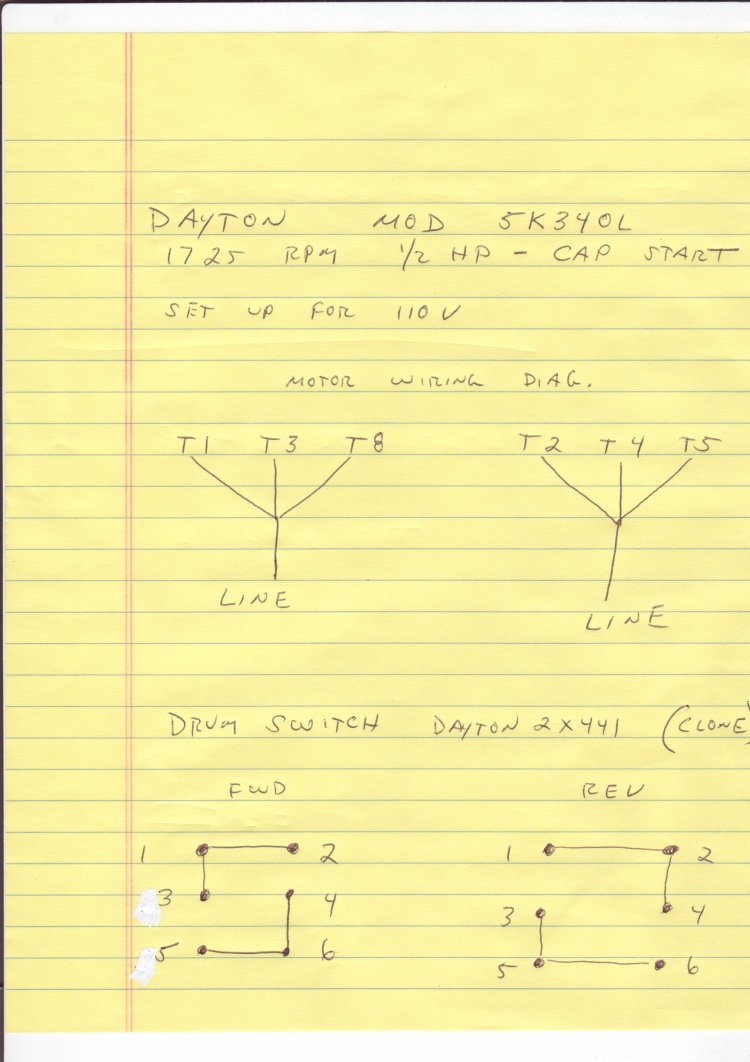 DAYTON MOD 5K340L
1725 RPM 1/2 HP - CAP START
SET UP FOR 110 V
MOTOR WIRING DIAG.
T1 T3 T8 T2 T4 T5
LINE
LINE
DRUM SWITCH DAYTON 2X441 (CLONE)
FWD REV
1 2 1 2
3 4 3 4
5 6 5 6